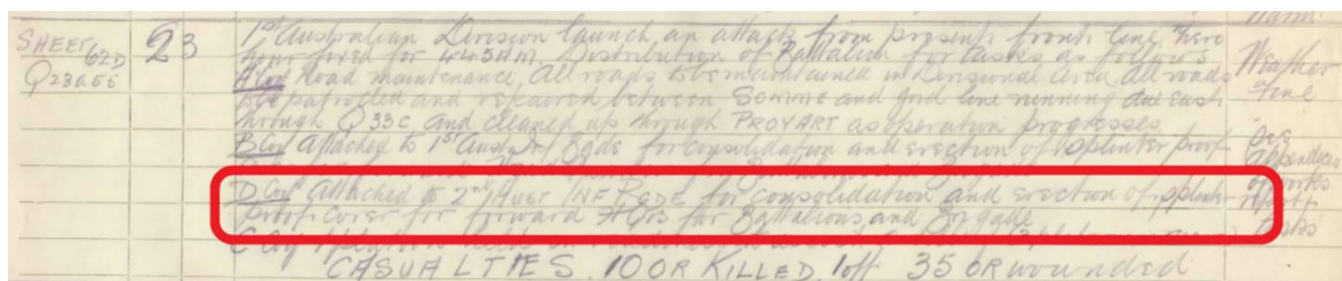 SHEET 62D
Q23a56
23
1st Australian Division launch an attack from present front line. Zero
hour fixed for 4.45AM. Distribution of Battalion for tasks as follows
A Coy Road maintenance. All roads to be maintained in Divisional Area. All roads
to be patrolled and repaired between SOMME and grid line running due east
through Q33c and cleaned up through PROYART as operation progresses
B Coy attached to 1st Aust Inf Bgde for consolidation and erection of splinter proof
D Coy attached to 2nd AUST INF BGDE for consolidation and erection of splinter
proof cover for forward HQrs for Battalions and Brigade
C Coy
CASUALTIES. 10 OR KILLED, 1 off 35 OR wounded
Warm
Weather
Fine
see
appendices
of works
report
tasks